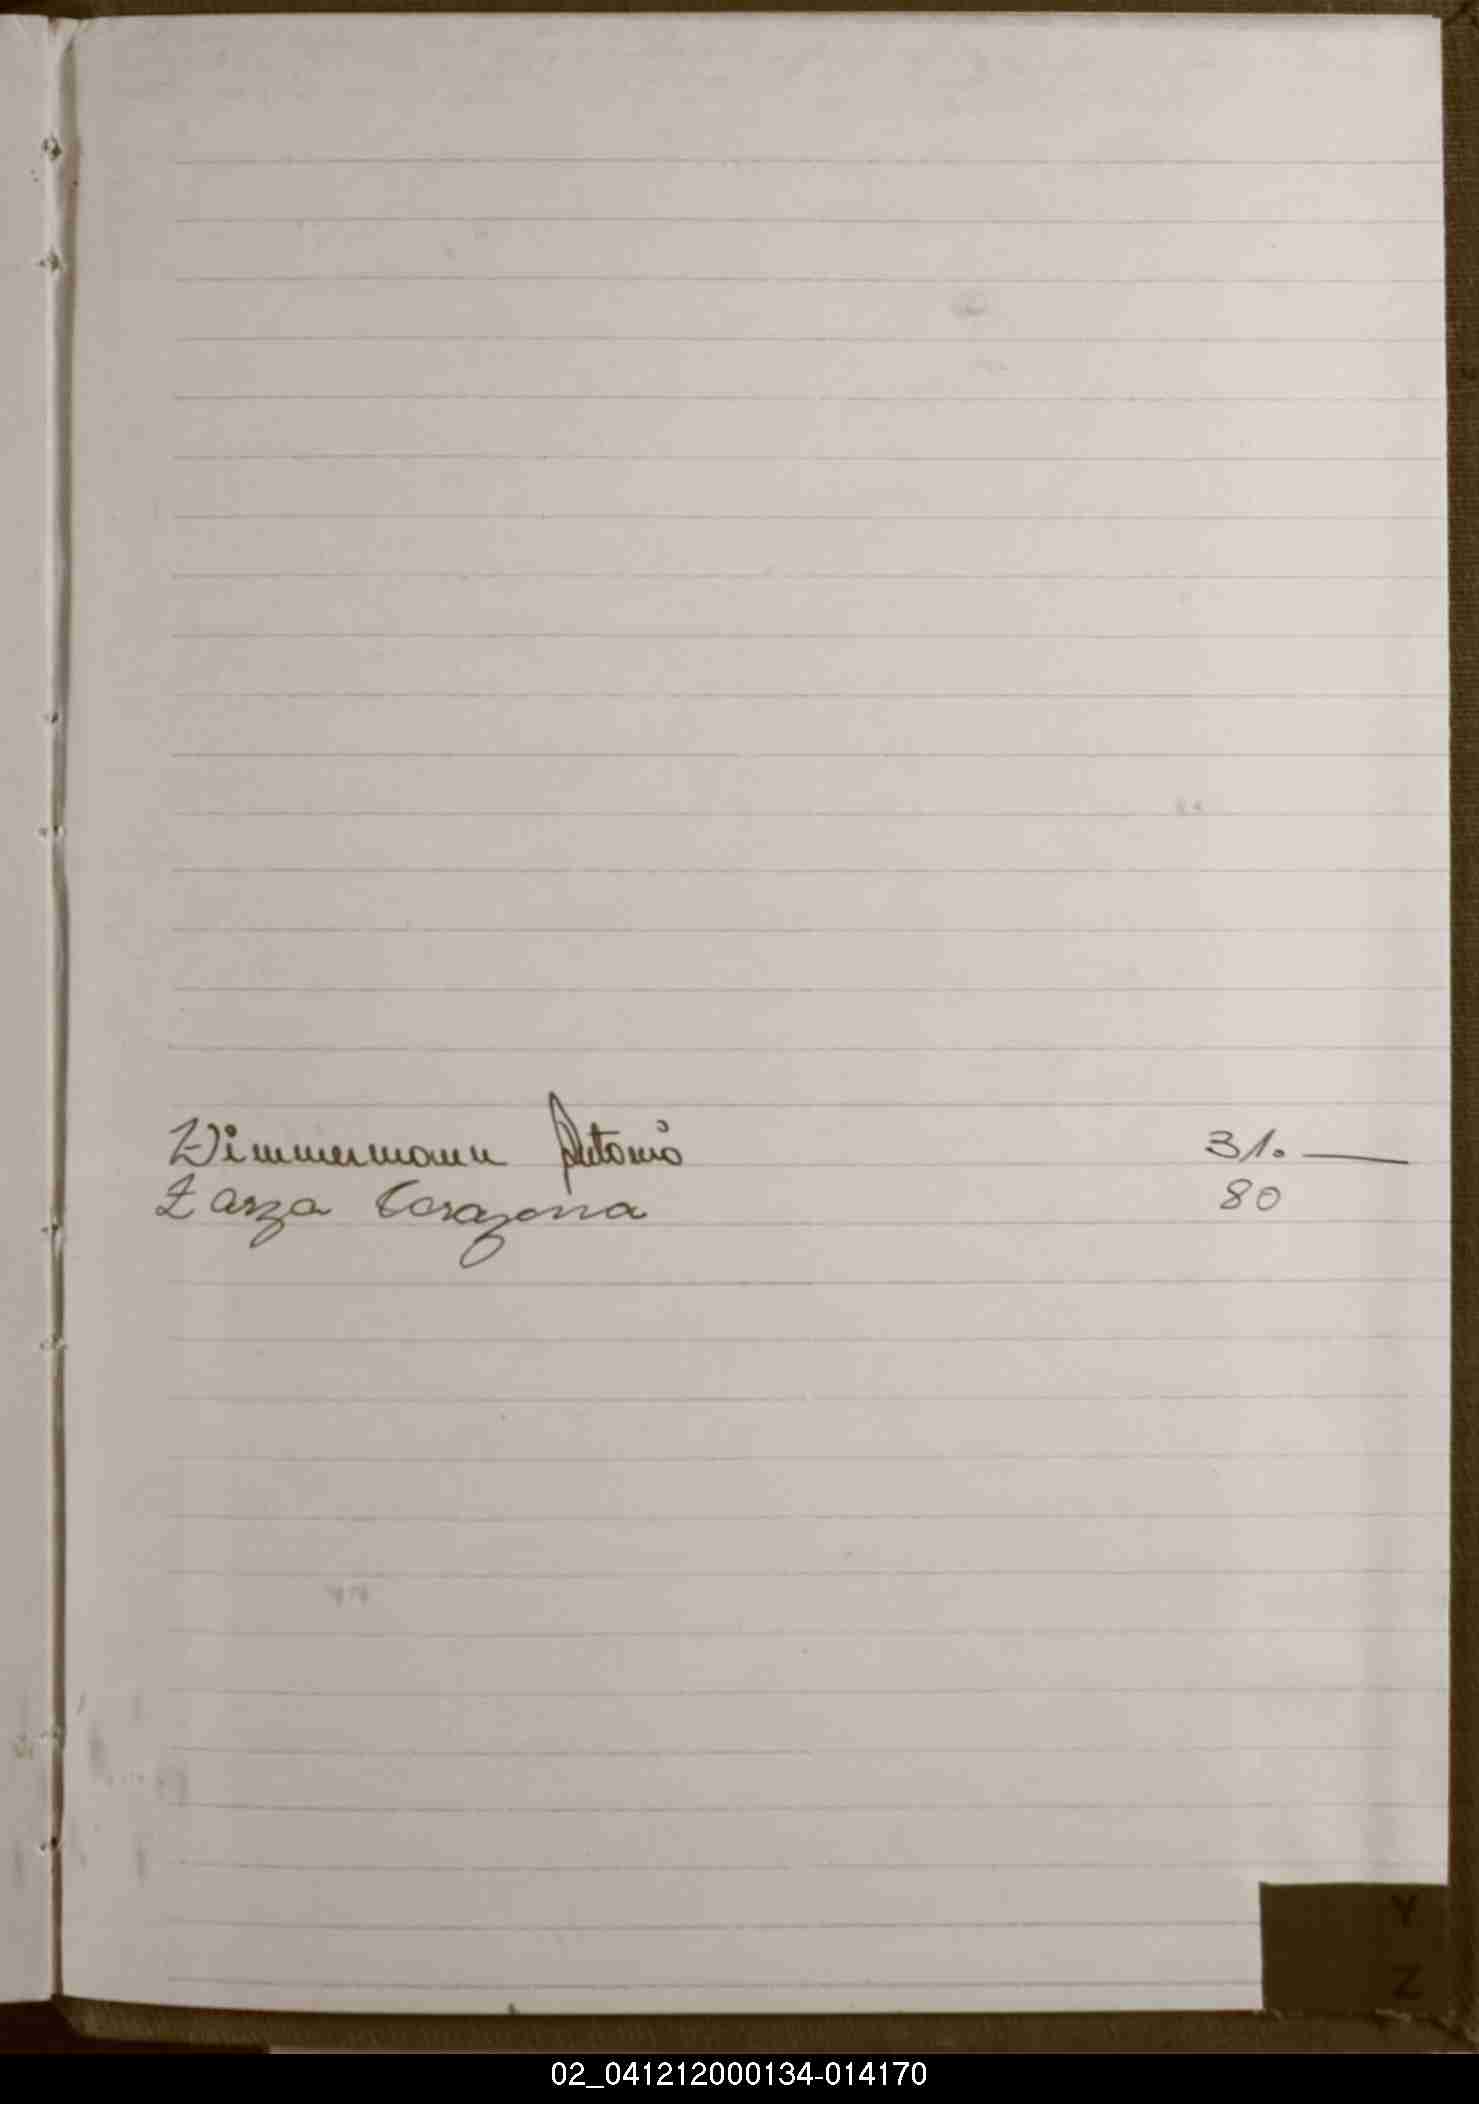 Zimmermann Antonio 31.
Zarza Corazona 80
Y
Z
02_041212000134-014170